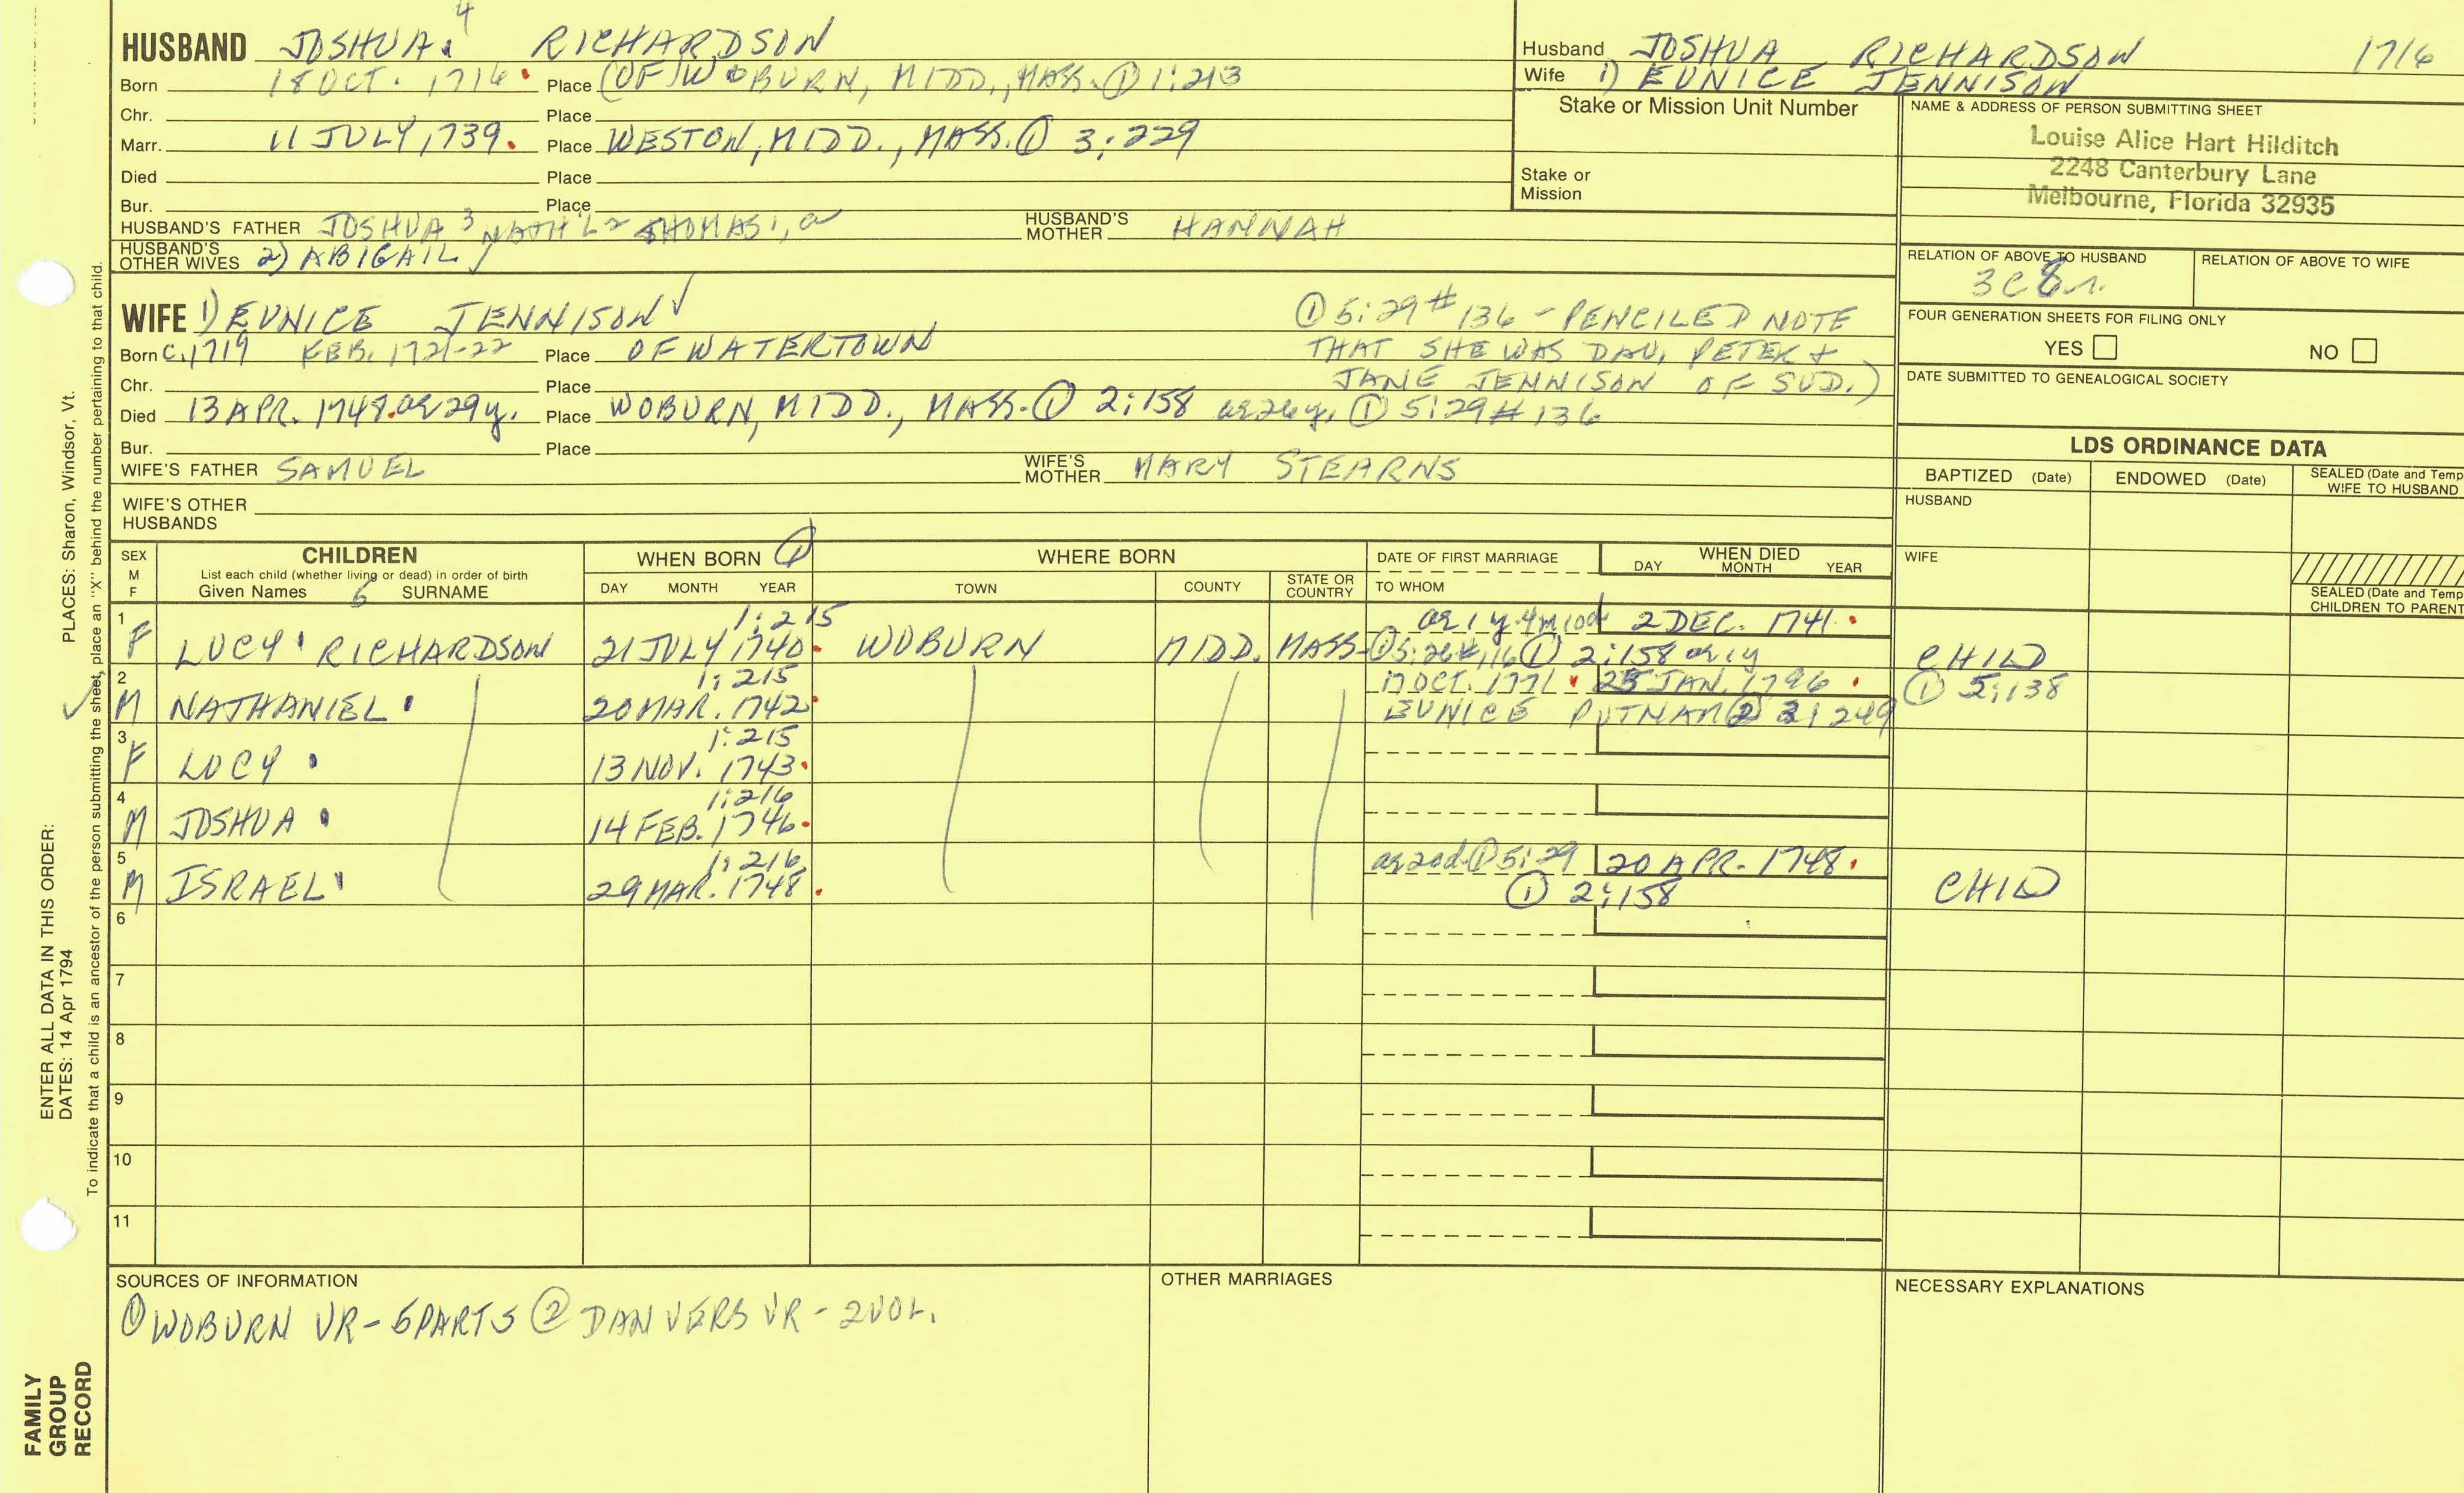 4
HUSBAND JOSHUA. RICHARDSON
Born 18 OCT. 1716. Place (OF) WOBURN, MIDD., MASS. ① 1:213
Chr. Place
Marr. 11 JULY 1739. Place WESTON, MIDD., MASS. ① 3:229
Died Place
Bur. Place
HUSBAND'S FATHER JOSHUA 3 NATH'L 2 THOMAS 1, HUSBAND'S MOTHER HANNAH
HUSBAND'S OTHER WIVES 2) ABIGAIL
Husband JOSHUA RICHARDSON 1716
Wife 1) EUNICE JENNISON
Stake or Mission Unit Number
Stake or
Mission
NAME & ADDRESS OF PERSON SUBMITTING SHEET
Louise Alice Hart Hilditch
2248 Canterbury Lane
Melbourne, Florida 32935
RELATION OF ABOVE TO HUSBAND RELATION OF ABOVE TO WIFE
3C8r.
FOUR GENERATION SHEETS FOR FILING ONLY
YES NO
DATE SUBMITTED TO GENEALOGICAL SOCIETY
WIFE 1) EUNICE JENNISON √
Born C. 1719 FEB. 1721-22 Place OF WATERTOWN
① 5:29 # 136 - PENCILED NOTE
THAT SHE WAS DAU, PETER +
JANE JENNISON OF SUD.)
Chr. Place
Died 13 APR. 1748. ae 29y. Place WOBURN, MIDD., MASS. ① 2:158 ae 26y, ① 5:29 # 136
Bur. Place
WIFE'S FATHER SAMUEL WIFE'S MOTHER MARY STEARNS
WIFE'S OTHER
HUSBANDS
LDS ORDINANCE DATA
BAPTIZED (Date) ENDOWED (Date) SEALED (Date and Temp
WIFE TO HUSBAND
HUSBAND
WIFE
SEALED (Date and Temp
CHILDREN TO PARENT
SEX
M
F
CHILDREN
List each child (whether living or dead) in order of birth
Given Names SURNAME
WHEN BORN ①
DAY MONTH YEAR
WHERE BORN
TOWN COUNTY STATE OR COUNTRY
DATE OF FIRST MARRIAGE
TO WHOM
WHEN DIED
DAY MONTH YEAR
1 1:215 ae 1 y 4m 10d 2 DEC. 1741.
F LUCY RICHARDSON 21 JULY 1740. WOBURN MIDD. MASS. ① 5:28#116 ① 2:158 ae 1y CHILD
2 1:215 17 OCT. 1771. 25 JAN. 1796. ① 5:138
M NATHANIEL 20 MAR. 1742. EUNICE PUTNAM ② 2:249
3 1:215
F LUCY 13 NOV. 1743.
4 1:216
M JOSHUA 14 FEB. 1746.
5 1:216 ae 20d. ① 5:29 20 APR. 1748.
M ISRAEL 29 MAR. 1748. ① 2:158 CHILD
6
7
8
9
10
11
SOURCES OF INFORMATION
① WOBURN VR - 6 PARTS ② DANVERS VR - 2 VOL.
OTHER MARRIAGES
NECESSARY EXPLANATIONS
PLACES: Sharon, Windsor, Vt.
ENTER ALL DATA IN THIS ORDER:
DATES: 14 Apr 1794
To indicate that a child is an ancestor of the person submitting the sheet, place an "X" behind the number pertaining to that child.
FAMILY
GROUP
RECORD